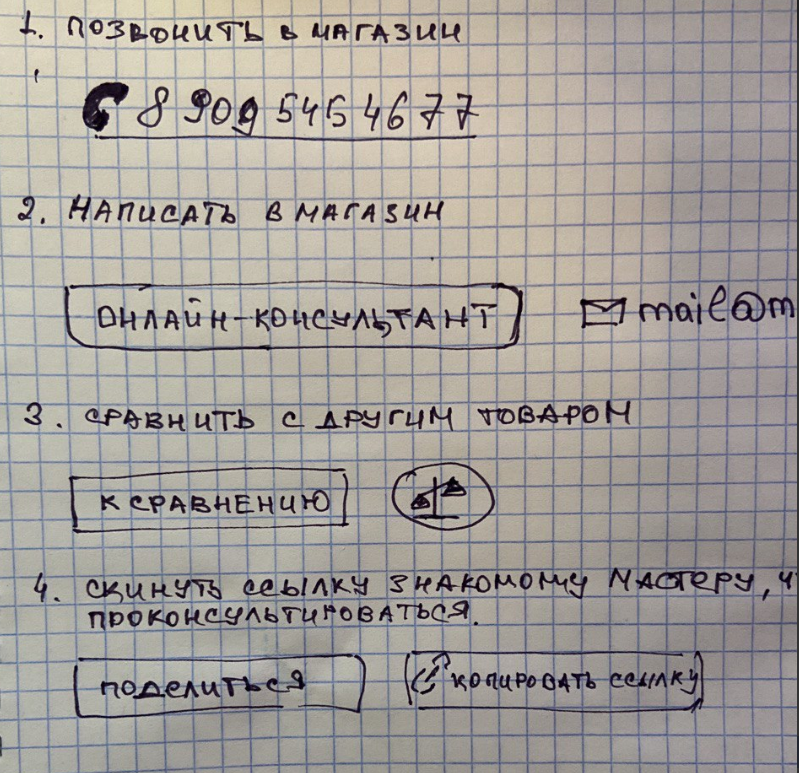 1. ПОЗВОНИТЬ В МАГАЗИН
8 909 545 46 77
2. НАПИСАТЬ В МАГАЗИН
ОНЛАЙН-КОНСУЛЬТАНТ mail@m
3. СРАВНИТЬ С ДРУГИМ ТОВАРОМ
К СРАВНЕНИЮ
4. СКИНУТЬ ССЫЛКУ ЗНАКОМОМУ МАСТЕРУ,
ПРОКОНСУЛЬТИРОВАТЬСЯ.
ПОДЕЛИТЬСЯ КОПИРОВАТЬ ССЫЛКУ